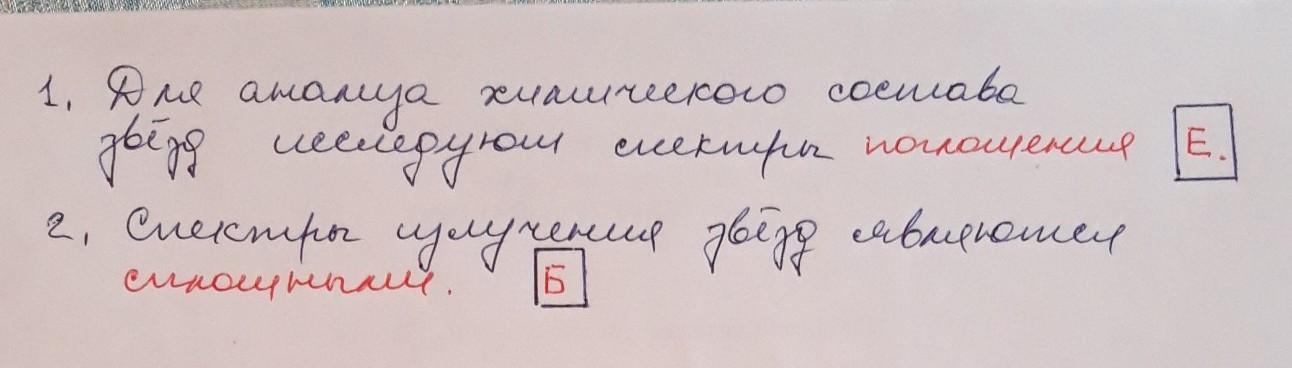 1. Для анализа химического состава
звёзд исследуют спектры поглощения Е.
2. Спектры излучения звёзд являются
сплошными. Б